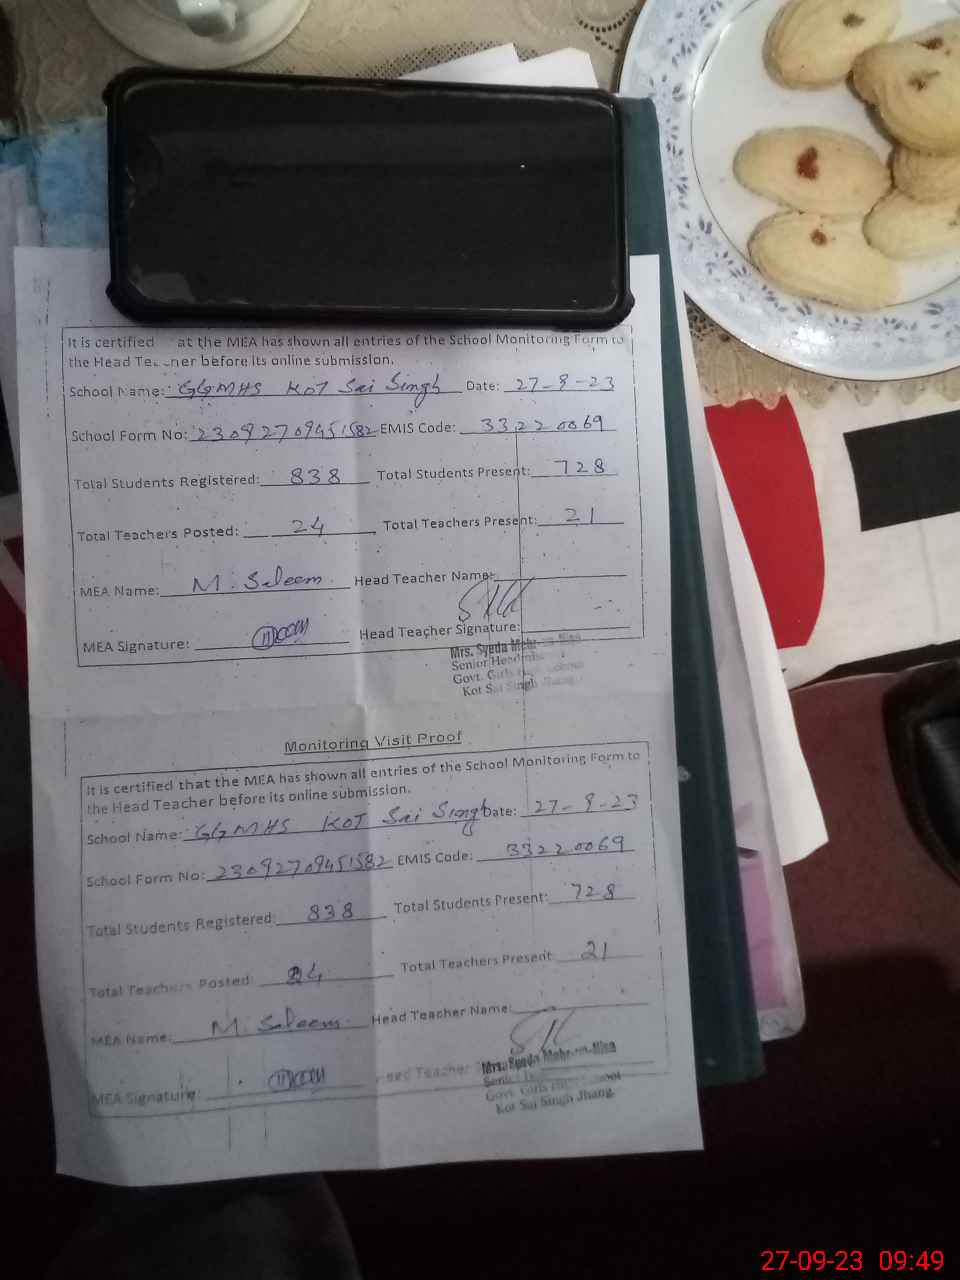 It is certified at the MEA has shown all entries of the School Monitoring Form to
the Head before its online submission.
School Name: GGMHS KOT Sai Singh Date: 27-9-23
School Form No: 23092709451582 EMIS Code: 33220069
Total Students Registered: 838 Total Students Present: 728
Total Teachers Posted: 24 Total Teachers Present: 21
MEA Name: M. Saleem Head Teacher Name:
MEA Signature: Head Teacher Signature:
Mrs. Syeda
Senior
Govt. Girls
Kot Sai Singh Jhang.
Monitoring Visit Proof
It is certified that the MEA has shown all entries of the School Monitoring Form to
the Head Teacher before its online submission.
School Name: GGMHS KOT Sai Singh Date: 27-9-23
School Form No: 23092709451582 EMIS Code: 33220069
Total Students Registered: 838 Total Students Present: 728
Total Teachers Posted: 24 Total Teachers Present: 21
MEA Name: M. Saleem Head Teacher Name:
MEA Signature: Teacher
Mrs. Syeda
Govt. Girls
Kot Sai Singh Jhang.
27-09-23 09:49